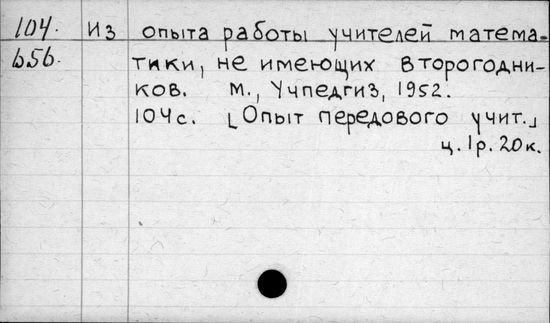 104. Из опыта работы учителей матема-
656. тики, не имеющих второгодни-
ков. М., Учпедгиз, 1952.
104с. [Опыт передового учит.]
ц. 1р. 20к.